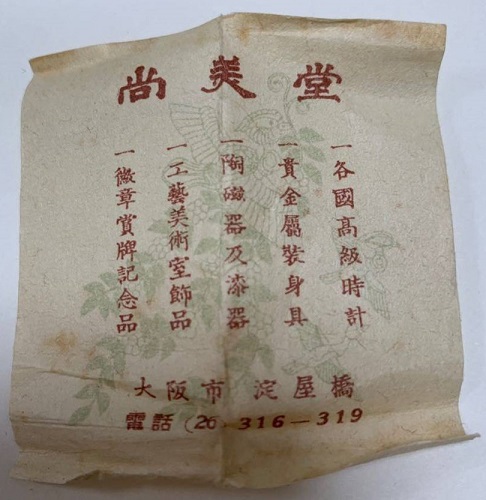 尚美堂
一各國高級時計
一貴金屬裝身具
一陶磁器及漆器
一工藝美術室飾品
一徽章賞牌記念品
大阪市 淀屋橋
電話(26)316—319